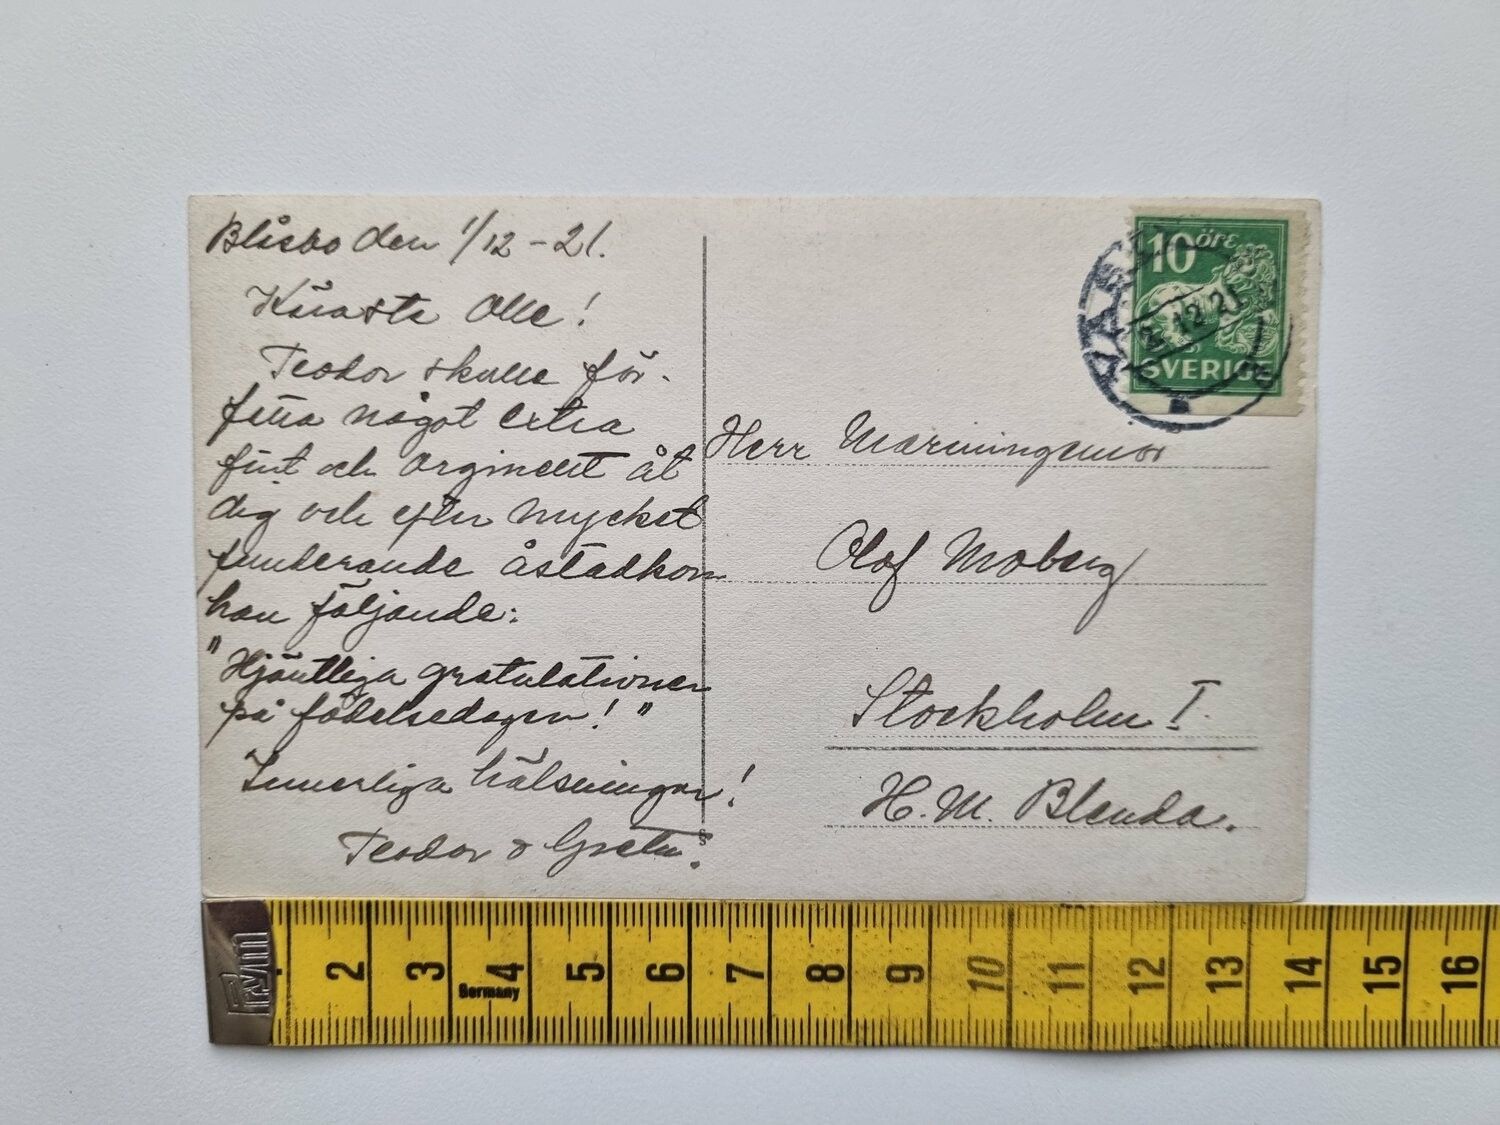 Blåsbo den 1/12 - 21.
Käraste Olle!
Teodor skulle för-
fatta något extra
fint och orginellt åt
dig och efter mycket
funderande åstadkom
han följande:
"Hjärtliga gratulationer
på födelsedagen!"
Innerliga hälsningar!
Teodor & Greta.
10 ÖRE
SVERIGE
2 12 21
Herr Mariningenjör
Olof Moberg
Stockholm I.
H. M. Blenda.
2 3 4 5 6 7 8 9 10 11 12 13 14 15 16
Germany